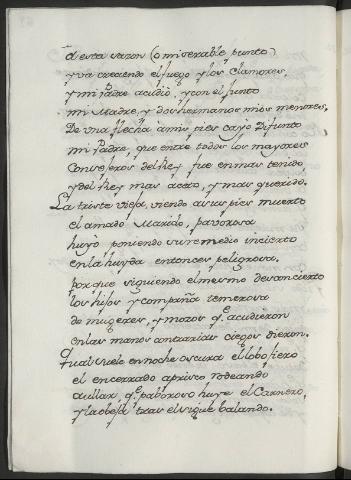 d'esta sazon (o miserable punto)
yva creciendo el fuego y los clamores,
y mi Padre acudiò, y con el junto
mi Madre, y dos hermanos mios menores,
De una flecha a mis pies cayo Difunto
mi Padre, que entre todos los mayores
Consejeros del Rey fue en mas tenido,
y del Rey mas aceto, y mas querido.
La triste vieja, viendo a sus pies muerto
el amado Marido, pavorosa
huyo poniendo su remedio incierto
en la huyda entonces peligrosa.
porque siguiendo el mesmo desconcierto
los hijos y compaña temerosa
de mugeres, y mozos q.e acudieron
en las manos contrarias ciegos dieron.
Qual suele en noche oscura el lobo fiero
el encerrado aprisco rodeando
aullar, q.e paboroso huye el Carnero,
y la obeja tras el sigue balando.